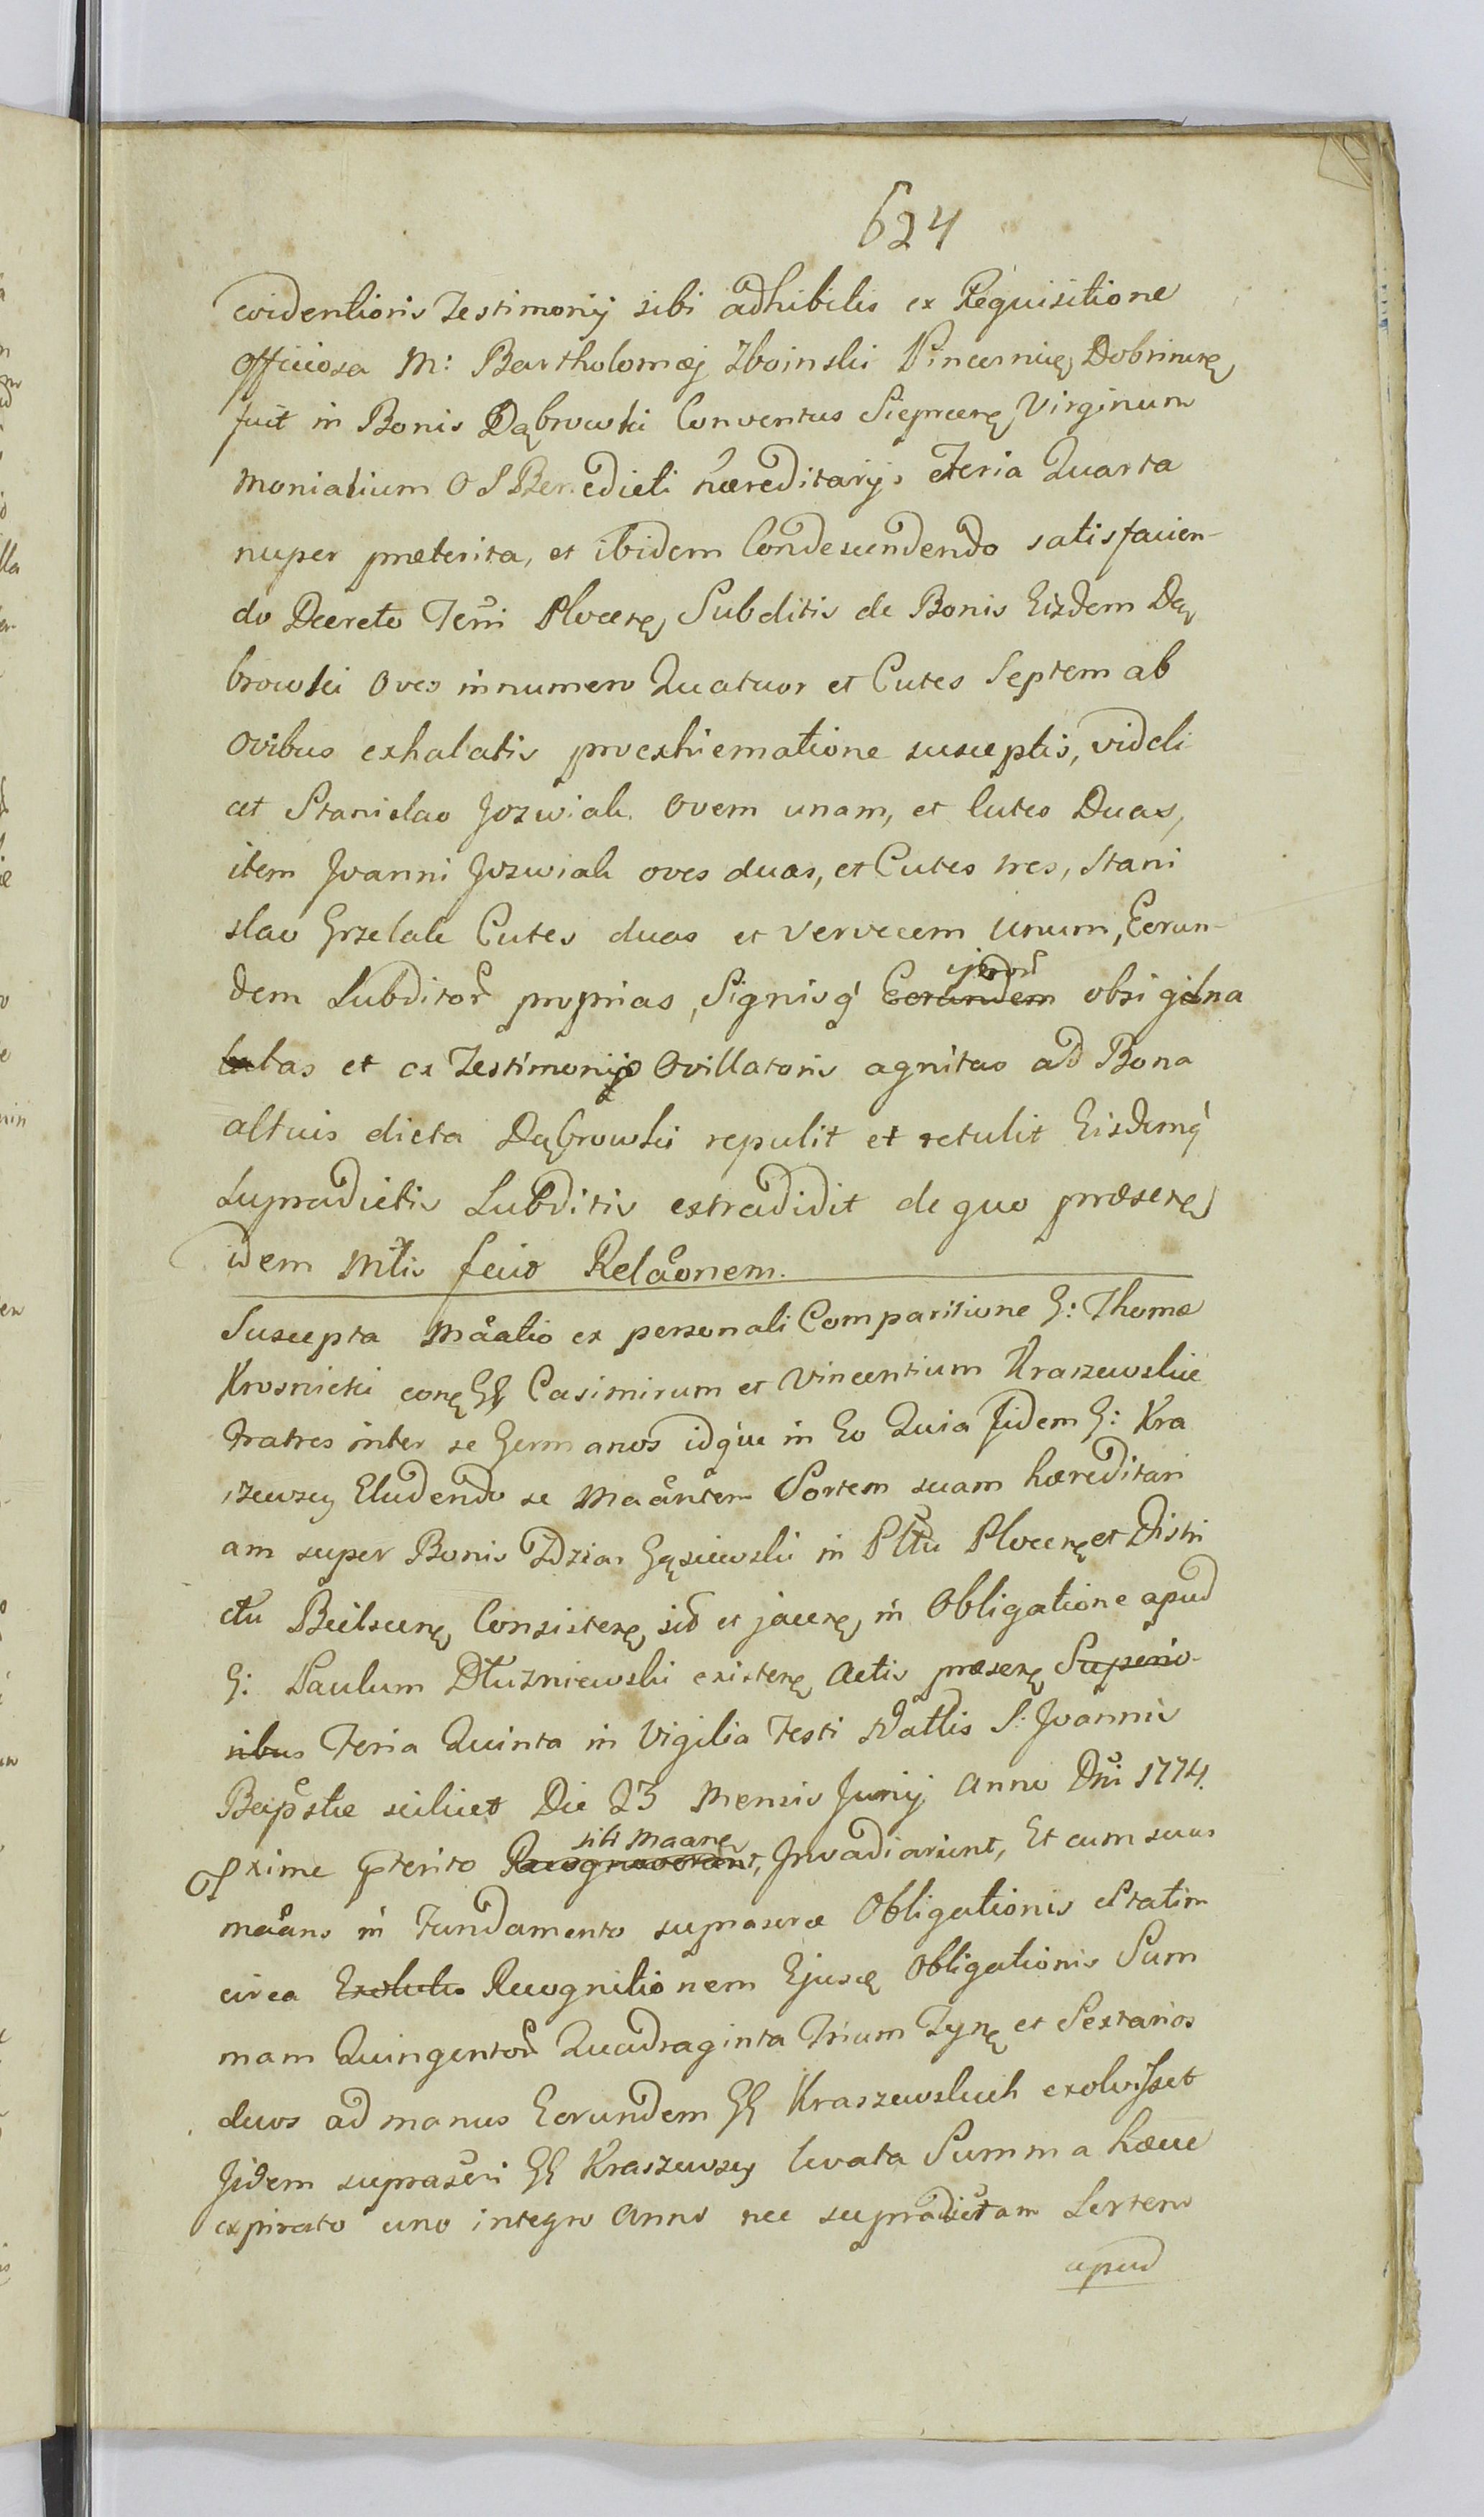 624
evidentioris Testimonij sibi adhibitis ex Requisitione
officiosa M: Bartholomæj Zboinski Pincernię Dobrinenę
fuit in Bonis Dąbrowki Conventus Siepncenę Virginum
Monialium O S Benedicti hæreditarijs Feria Quarta
nuper præterita, et ibidem Condescendendo satisfacien-
do Decreto Terri Plocenę Subditis de Bonis Eisdem Dą
browki Oves in numero Quatuor et Cutes Septem ab
Ovibus exhalatis pro exhiematione susceptis, videli
cet Stanislao Jozwiak Ovem unam, et Cutes Duas,
item Joanni Jozwiak oves duas, et Cutes tres, Stani
slao Grzelak Cutes duas et Vervecem Unum, Eorun-
dem Subditor proprias, Signisq́ Eorundem ipsor obsigilna
tas et ex Testimonijo Ovillatoris agnitas ad Bona
altius dicta Dąbrowki repulit et retulit Eisdemq́
Supradictis Subditis extradidit de quo præsenę
idem Mtis fecit Relaonem.
Suscepta Maatio ex personali Comparitione G: Thomæ
Krosnicki conę GG Casimirum et Vincentium Kraszewskie
Fratres inter se Germanos idq́ue in Eo Quia Iidem G: Kra
szewscy Eludendo se Maantem Sortem suam hæreditari
am super Bonis Zdziar Gąsiewski in Pltu Plocenę et Distri
ctu Bielscenę Consistenę sed et jacenę in Obligatione apud
G: Paulum Dłuzniewski existenę Actis præsenę Superio-
ribus Feria Quinta in Vigilia Festi Natlis S: Joannis
Bapstæ scilicet Die 23 Mensis Junij Anno Dni 1774.
pxime pterito Recognoverant, sibi Maane Invadiarunt, Et cum suus
maans in Fundamento suprascræ Obligationis statim
circa Exoluti Recognitionem Ejusdę Obligationis Sum
mam Quingentor Quadraginta Trium Tynę et Sextarios
duos ad manus Eorundem GG Kraszewskich exolvisset
Iidem suprascri GG Kraszewscy levata Summa hacce
expirato uno integro Anno nec supradictam Sortem
apud